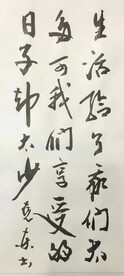 生活给了我们太
多可我们享受的
日子却太少